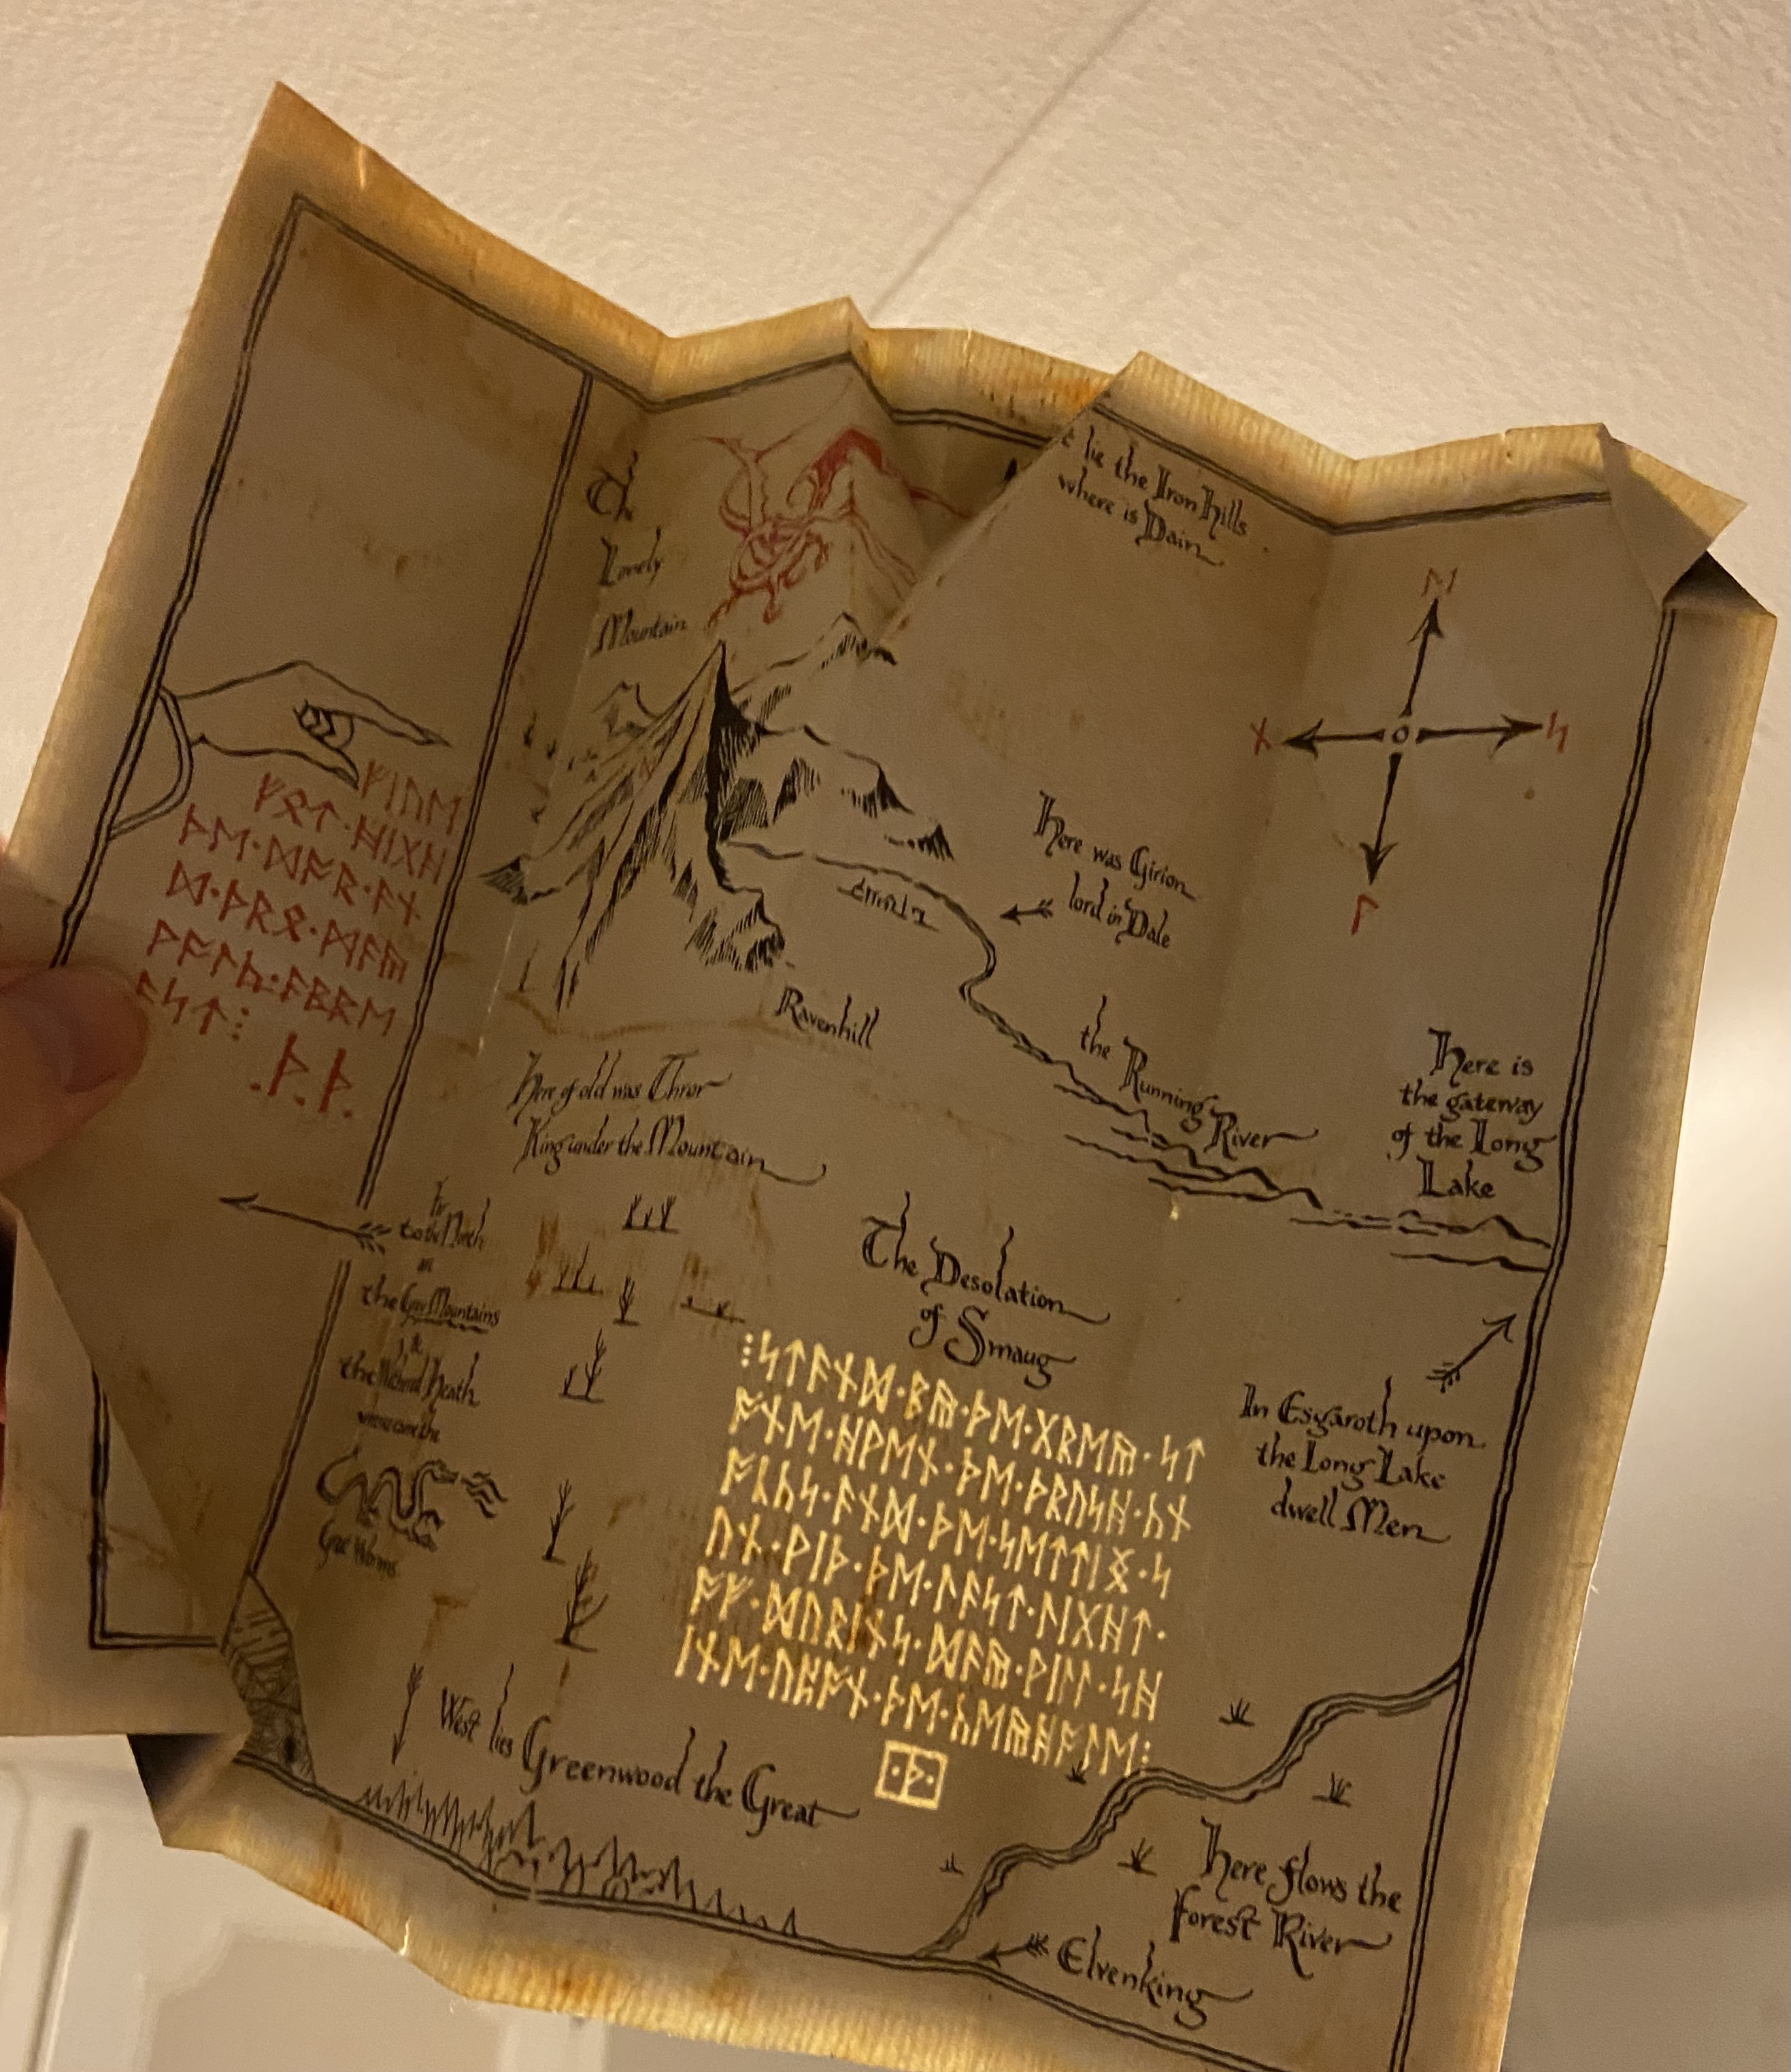 The
Lonely
Mountain
lie the Iron Hills
where is Dain
ᛋ
ᚠᛁᚢᛖ
ᚠᛟᛏ᛫ᚻᛁᚷᚻ
ᚦᛖ᛫ᛞᚩᚱ᛫ᚪᚾ
ᛞ᛫ᚦᚱᛟ᛫ᛗᚪᚣ
ᚹᚪᛚᚳ᛫ᚪᛒᚱᛖ
ᚪᛋᛏ⁝
᛫ᚦ᛫ᚦ᛫
Here was Girion
lord in Dale
Ravenhill
the Running River
Here is
the gateway
of the Long
Lake
Here of old was Thror
King under the Mountain
Far
to the North
are
the Grey Mountains
&
the Withered Heath
whence came the
Great Worms
The Desolation
of Smaug
⁝ᛋᛏᚪᚾᛞ᛫ᛒᚣ᛫ᚦᛖ᛫ᚷᚱᛖᚣ᛫ᛋᛏ
ᚩᚾᛖ᛫ᚻᚹᛖᚾ᛫ᚦᛖ᛫ᚦᚱᚢᛋᚻ᛫ᚳᚾ
ᚩᚳᚳᛋ᛫ᚪᚾᛞ᛫ᚦᛖ᛫ᛋᛖᛏᛏᛁᛝ᛫ᛋ
ᚢᚾ᛫ᚹᛁᚦ᛫ᚦᛖ᛫ᛚᚪᛋᛏ᛫ᛚᛁᚷᚻᛏ᛫
ᚩᚠ᛫ᛞᚢᚱᛁᚾᛋ᛫ᛞᚪᚣ᛫ᚹᛁᛚᛚ᛫ᛋᚻ
ᛁᚾᛖ᛫ᚢᛈᚩᚾ᛫ᚦᛖ᛫ᚳᛖᚣᚻᚩᛚᛖ⁝
᛫ᚦ᛫
In Esgaroth upon
the Long Lake
dwell Men
West lies Greenwood the Great
Here flows the
Forest River
Elvenking